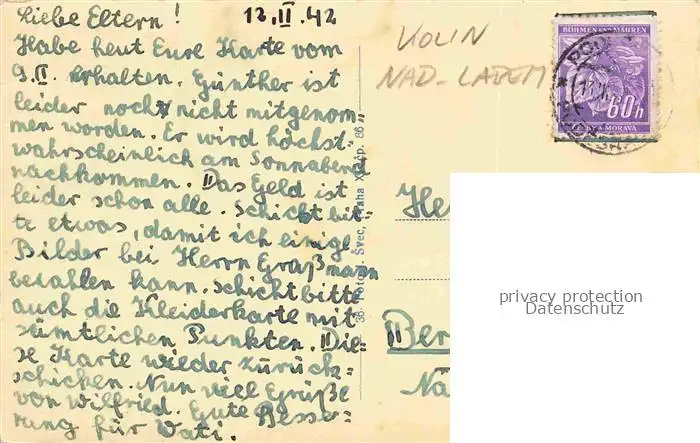 Liebe Eltern! 12.II.42
Habe heut Eure Karte vom
9.II. erhalten. Günther ist
leider noch nicht mitgenom-
men worden. Er wird höchst-
wahrscheinlich am Sonnabend
nachkommen. Das Geld ist
leider schon alle. Schickt bit-
te etwas, damit ich einige
Bilder bei Herrn Graßmann
bezahlen kann. Schickt bitte
auch die Kleiderkarte mit
sämtlichen Punkten. Die-
se Karte wieder zurück-
schicken. Nun viel Grüße
von Wilfried. Gute Besse-
rung für Vati.
KOLIN
NAD-LABEM
BÖHMEN UND MÄHREN
60h
MORAVA
Foto J. Švec, Praha
He
Ber
privacy protection
Datenschutz